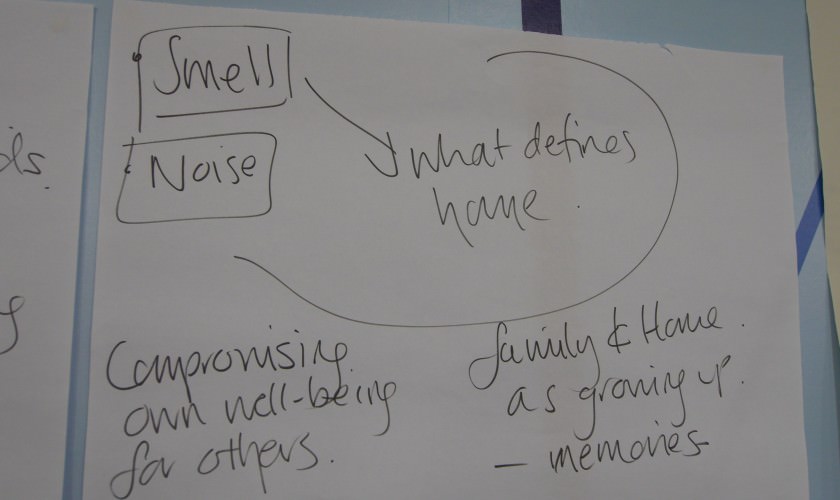 ds.
Smell
Noise
what defines
home.
Compromising
own well-being
for others.
family & Home.
as growing up.
- memories